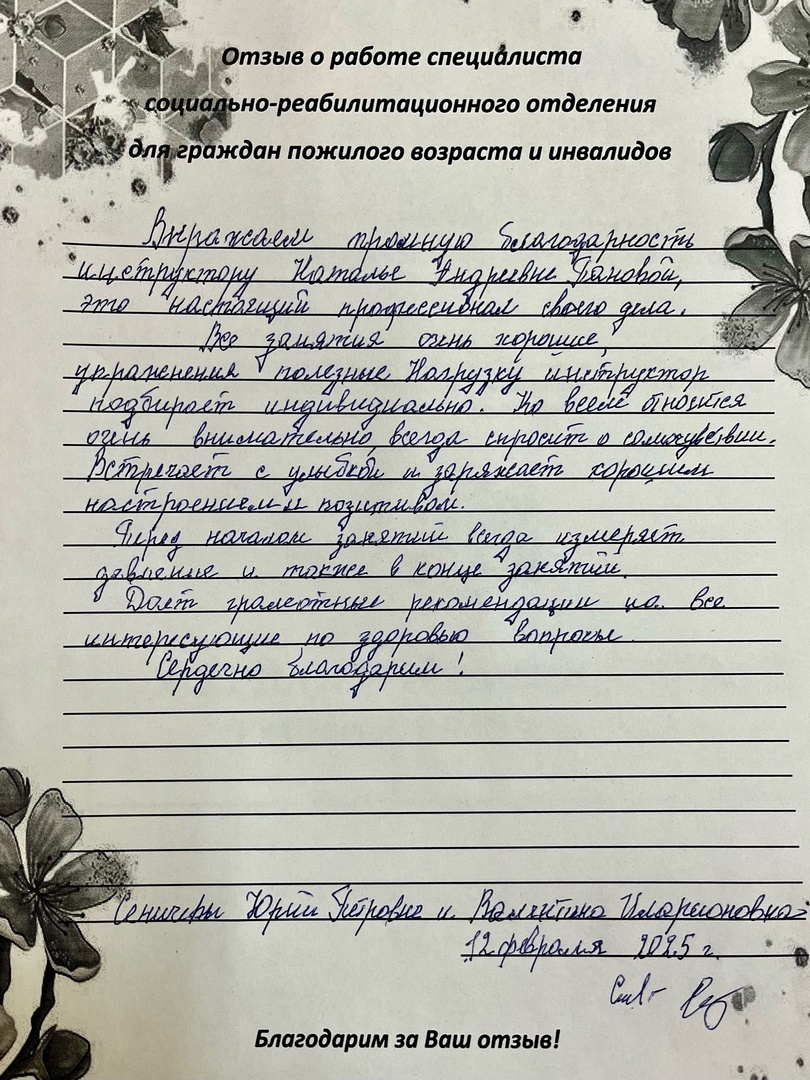 Отзыв о работе специалиста
социально-реабилитационного отделения
для граждан пожилого возраста и инвалидов
Выражаем громную благодарность
инструктору Наталье Андреевне Пановой,
это настоящий профессионал своего дела.
Все занятия очень хорошие,
упражнения полезные Нагрузку инструктор
подбирает индивидуально. Ко всем относится
очень внимательно, всегда спросит о самочувствии.
Встречает с улыбкой и заряжает хорошим
настроением и позитивом.
Перед началом занятий всегда измеряет
давление и также в конце занятий.
Дает грамотные рекомендации на все
интересующие по здоровью вопросы.
Сердечно благодарим!
Юрий Петрович и Валентина Иларионовна
12 февраля 2025 г.
Благодарим за Ваш отзыв!